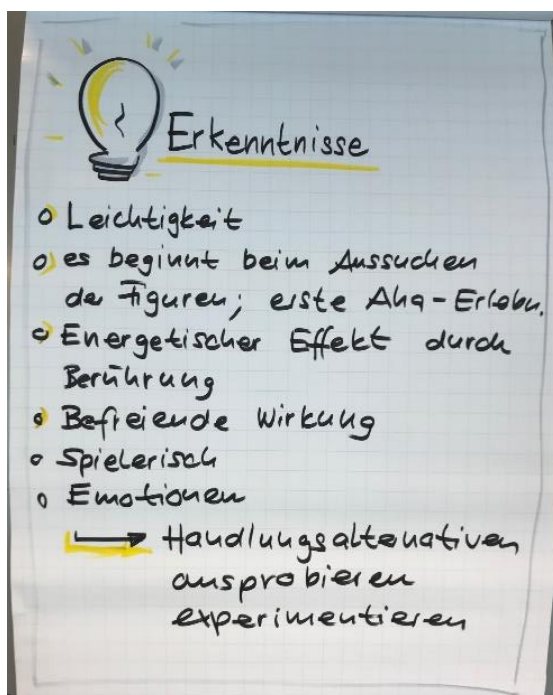 Erkenntnisse
Leichtigkeit
es beginnt beim Aussuchen
der Figuren; erste Aha-Erlebn.
Energetischer Effekt durch
Berührung
Befreiende Wirkung
Spielerisch
Emotionen
→ Handlungsalternativen
ausprobieren
experimentieren